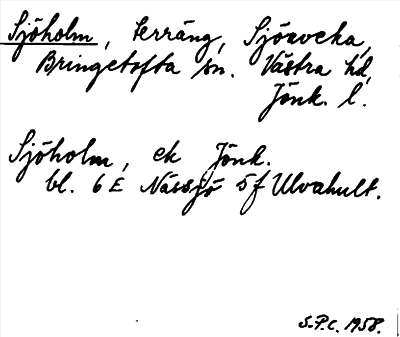 Sjöholm, terräng, Sjöaveka,
Bringetofta sn. Västra hd,
Jönk. l.
Sjöholm, ek Jönk.
bl. 6 E Nässjö 5f Ulvahult.
S.P.C. 1958.